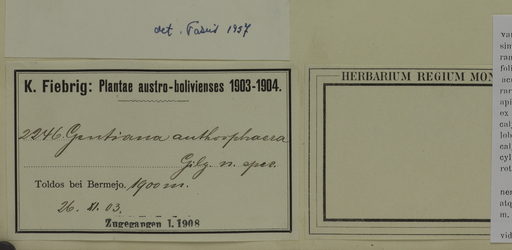 det. Fabris 1957
K. Fiebrig: Plantae austro-bolivienses 1903-1904.
2246. Gentiana anthosphaera
Gilg n. spec.
Toldos bei Bermejo. 1900 m.
26. XI. 03.
Zugegangen 1. 1908
HERBARIUM REGIUM MON
va
sim
ran
foli
rar
api
ex
cal
lob
cal
cyl
rot
atq
m.
vid